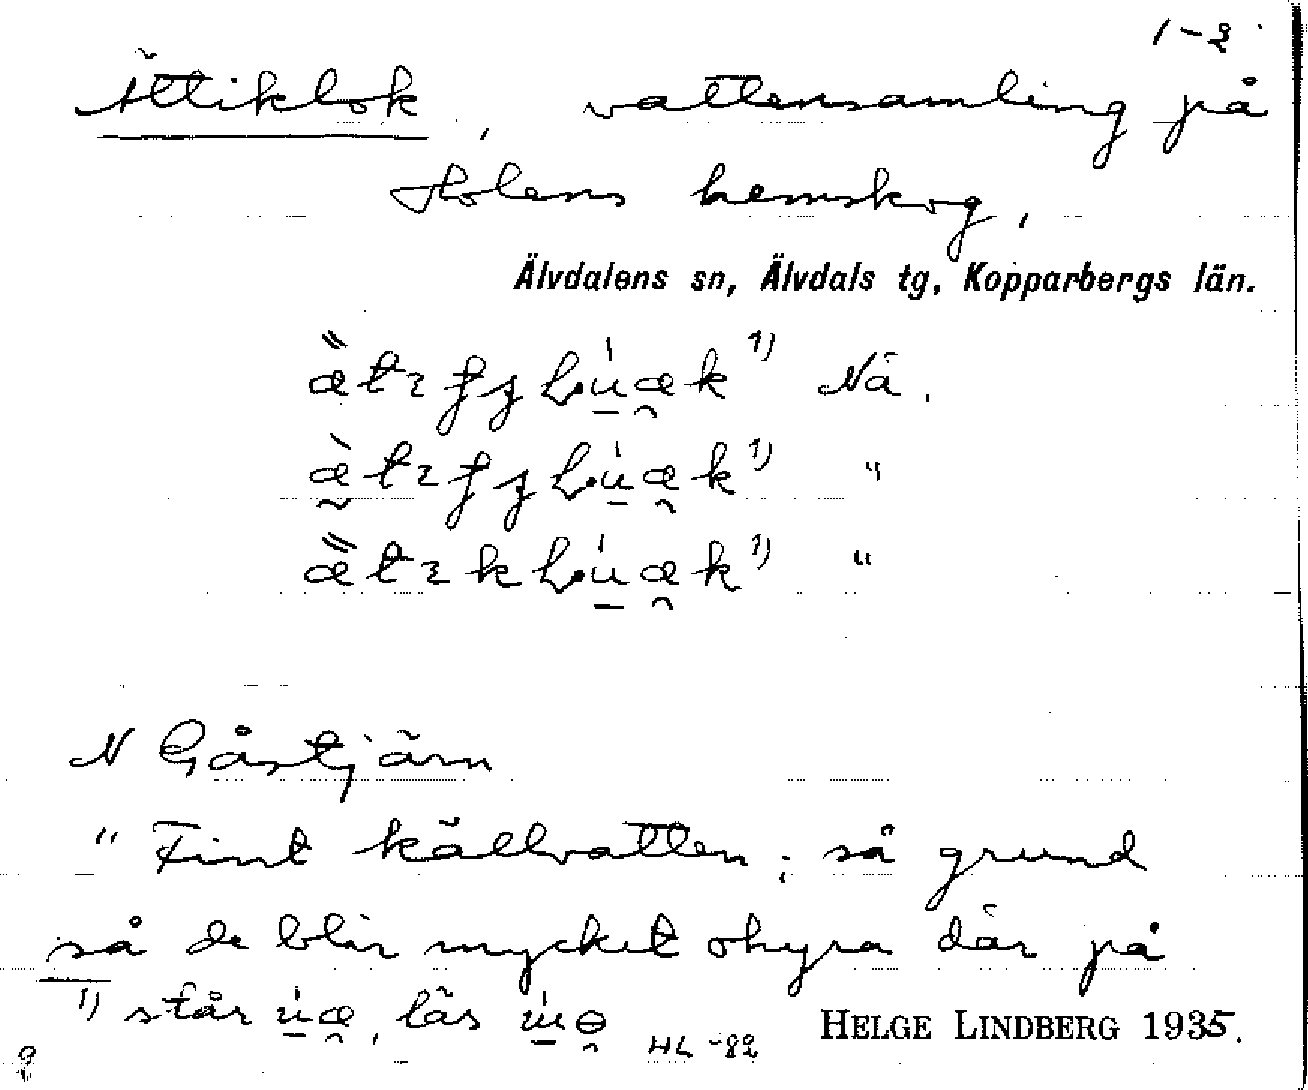 1-2
Ättiklok, vattensamling på
Holens hemskog,
Älvdalens sn, Älvdals tg, Kopparbergs län.
1) Nä.
1) "
1) "
N Gåstjärn
" Fint källvatten; så grund
så de blir mycket ohyra där på
1) står u̱æ̯, läs ɯ̱ɵ̯ HL -82
HELGE LINDBERG 1935.